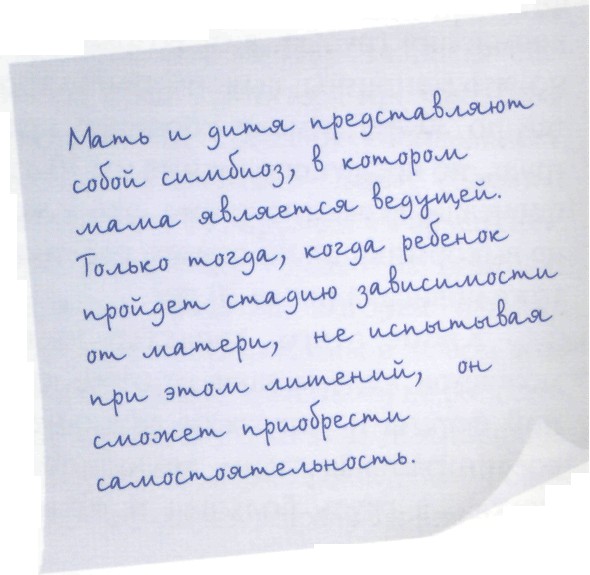 Мать и дитя представляют
собой симбиоз, в котором
мама является ведущей.
Только тогда, когда ребенок
пройдет стадию зависимости
от матери, не испытывая
при этом лишений, он
сможет приобрести
самостоятельность.